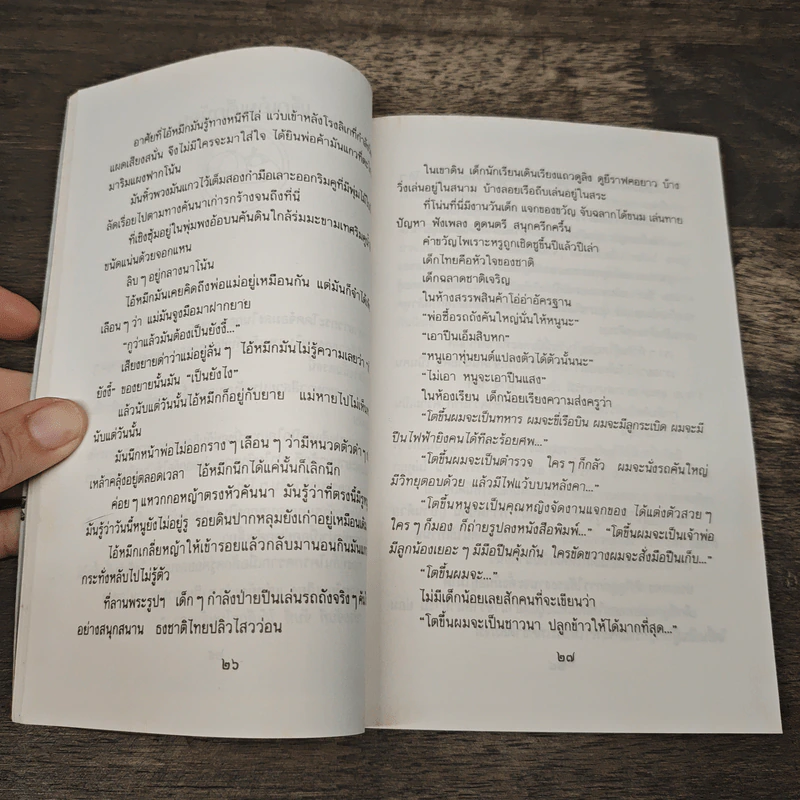 อาศัยที่ไอ้หมึกมันรู้ทางหนีทีไล่ แว่บเข้าหลังโรงลิเกที่กำลัง
แผดเสียงสนั่น จึงไม่มีใครจะมาใส่ใจ ได้ยินพ่อค้ามันแกวที่
มาริมแผงฟากโน้น
มันหิ้วพวงมันแกวไว้เต็มสองกำมือเลาะออกริมคูที่มีพุ่มไม้
ลัดเรื่อยไปตามทางคันนาเก่ารกร้างจนถึงที่นี่
ที่เชิงซุ้มอยู่ในพุ่มพงอ้อบนคันดินใกล้ร่มมะขามเทศริม
ขนัดแน่นด้วยจอกแหน
ลิบๆ อยู่กลางนาโน้น
ไอ้หมึกมันเคยคิดถึงพ่อแม่อยู่เหมือนกัน แต่มันก็จำได้
เลือนๆ ว่า แม่มันจูงมือมาฝากยาย
"กูว่าแล้วมันต้องเป็นยังงี้..."
เสียงยายด่าว่าแม่อยู่ลั่นๆ ไอ้หมึกมันไม่รู้ความเลยว่า
ยังงี้" ของยายนั้นมัน "เป็นยังไง"
แล้วนับแต่วันนั้นไอ้หมึกก็อยู่กับยาย แม่หายไปไม่เห็น
นับแต่วันนั้น
มันนึกหน้าพ่อไม่ออกรางๆ เลือนๆ ว่ามีหนวดตัวดำๆ
เหล้าคลุ้งอยู่ตลอดเวลา ไอ้หมึกนึกได้แค่นั้นก็เลิกนึก
ค่อยๆ แหวกกอหญ้าตรงหัวคันนา มันรู้ว่าที่ตรงนี้มีรู
มันรู้ว่าวันนี้หนูยังไม่อยู่รู รอยดินปากหลุมยังเก่าอยู่เหมือนเดิม
ไอ้หมึกเกลี่ยหญ้าให้เข้ารอยแล้วกลับมานอนกินมัน
กระทั่งหลับไปไม่รู้ตัว
ที่ลานพระรูปฯ เด็กๆ กำลังป่ายปีนเล่นรถถังจริงๆ คัน
อย่างสนุกสนาน ธงชาติไทยปลิวไสวว่อน
๒๖
ในเขาดิน เด็กนักเรียนเดินเรียงแถวดูลิง ดูยีราฟคอยาว บ้าง
วิ่งเล่นอยู่ในสนาม บ้างลอยเรือถีบเล่นอยู่ในสระ
ที่โน่นที่นี่มีงานวันเด็ก แจกของขวัญ จับฉลากได้ขนม เล่นทาย
ปัญหา ฟังเพลง ดูดนตรี สนุกครึกครื้น
คำขวัญไพเราะหรูถูกเชิดชูขึ้นปีแล้วปีเล่า
เด็กไทยคือหัวใจของชาติ
เด็กฉลาดชาติเจริญ
ในห้างสรรพสินค้าโอ่อ่าอัครฐาน
"พ่อซื้อรถถังคันใหญ่นั่นให้หนูนะ"
"เอาปืนเอ็มสิบหก"
"หนูเอาหุ่นยนต์แปลงตัวได้ตัวนั้นนะ"
"ไม่เอา หนูจะเอาปืนแสง"
ในห้องเรียน เด็กน้อยเรียงความส่งครูว่า
"โตขึ้นผมจะเป็นทหาร ผมจะขี่เรือบิน ผมจะมีลูกระเบิด ผมจะมี
ปืนไฟฟ้ายิงคนได้ทีละร้อยศพ..."
"โตขึ้นผมจะเป็นตำรวจ ใครๆ ก็กลัว ผมจะนั่งรถคันใหญ่
มีวิทยุตอบด้วย แล้วมีไฟแว้บบนหลังคา..."
"โตขึ้นหนูจะเป็นคุณหญิงจัดงานแจกของ ได้แต่งตัวสวยๆ
ใครๆ ก็มอง ก็ถ่ายรูปลงหนังสือพิมพ์..." "โตขึ้นผมจะเป็นเจ้าพ่อ
มีลูกน้องเยอะๆ มีมือปืนคุ้มกัน ใครขัดขวางผมจะสั่งมือปืนเก็บ..."
"โตขึ้นผมจะ..."
ไม่มีเด็กน้อยเลยสักคนที่จะเขียนว่า
"โตขึ้นผมจะเป็นชาวนา ปลูกข้าวให้ได้มากที่สุด..."
๒๗